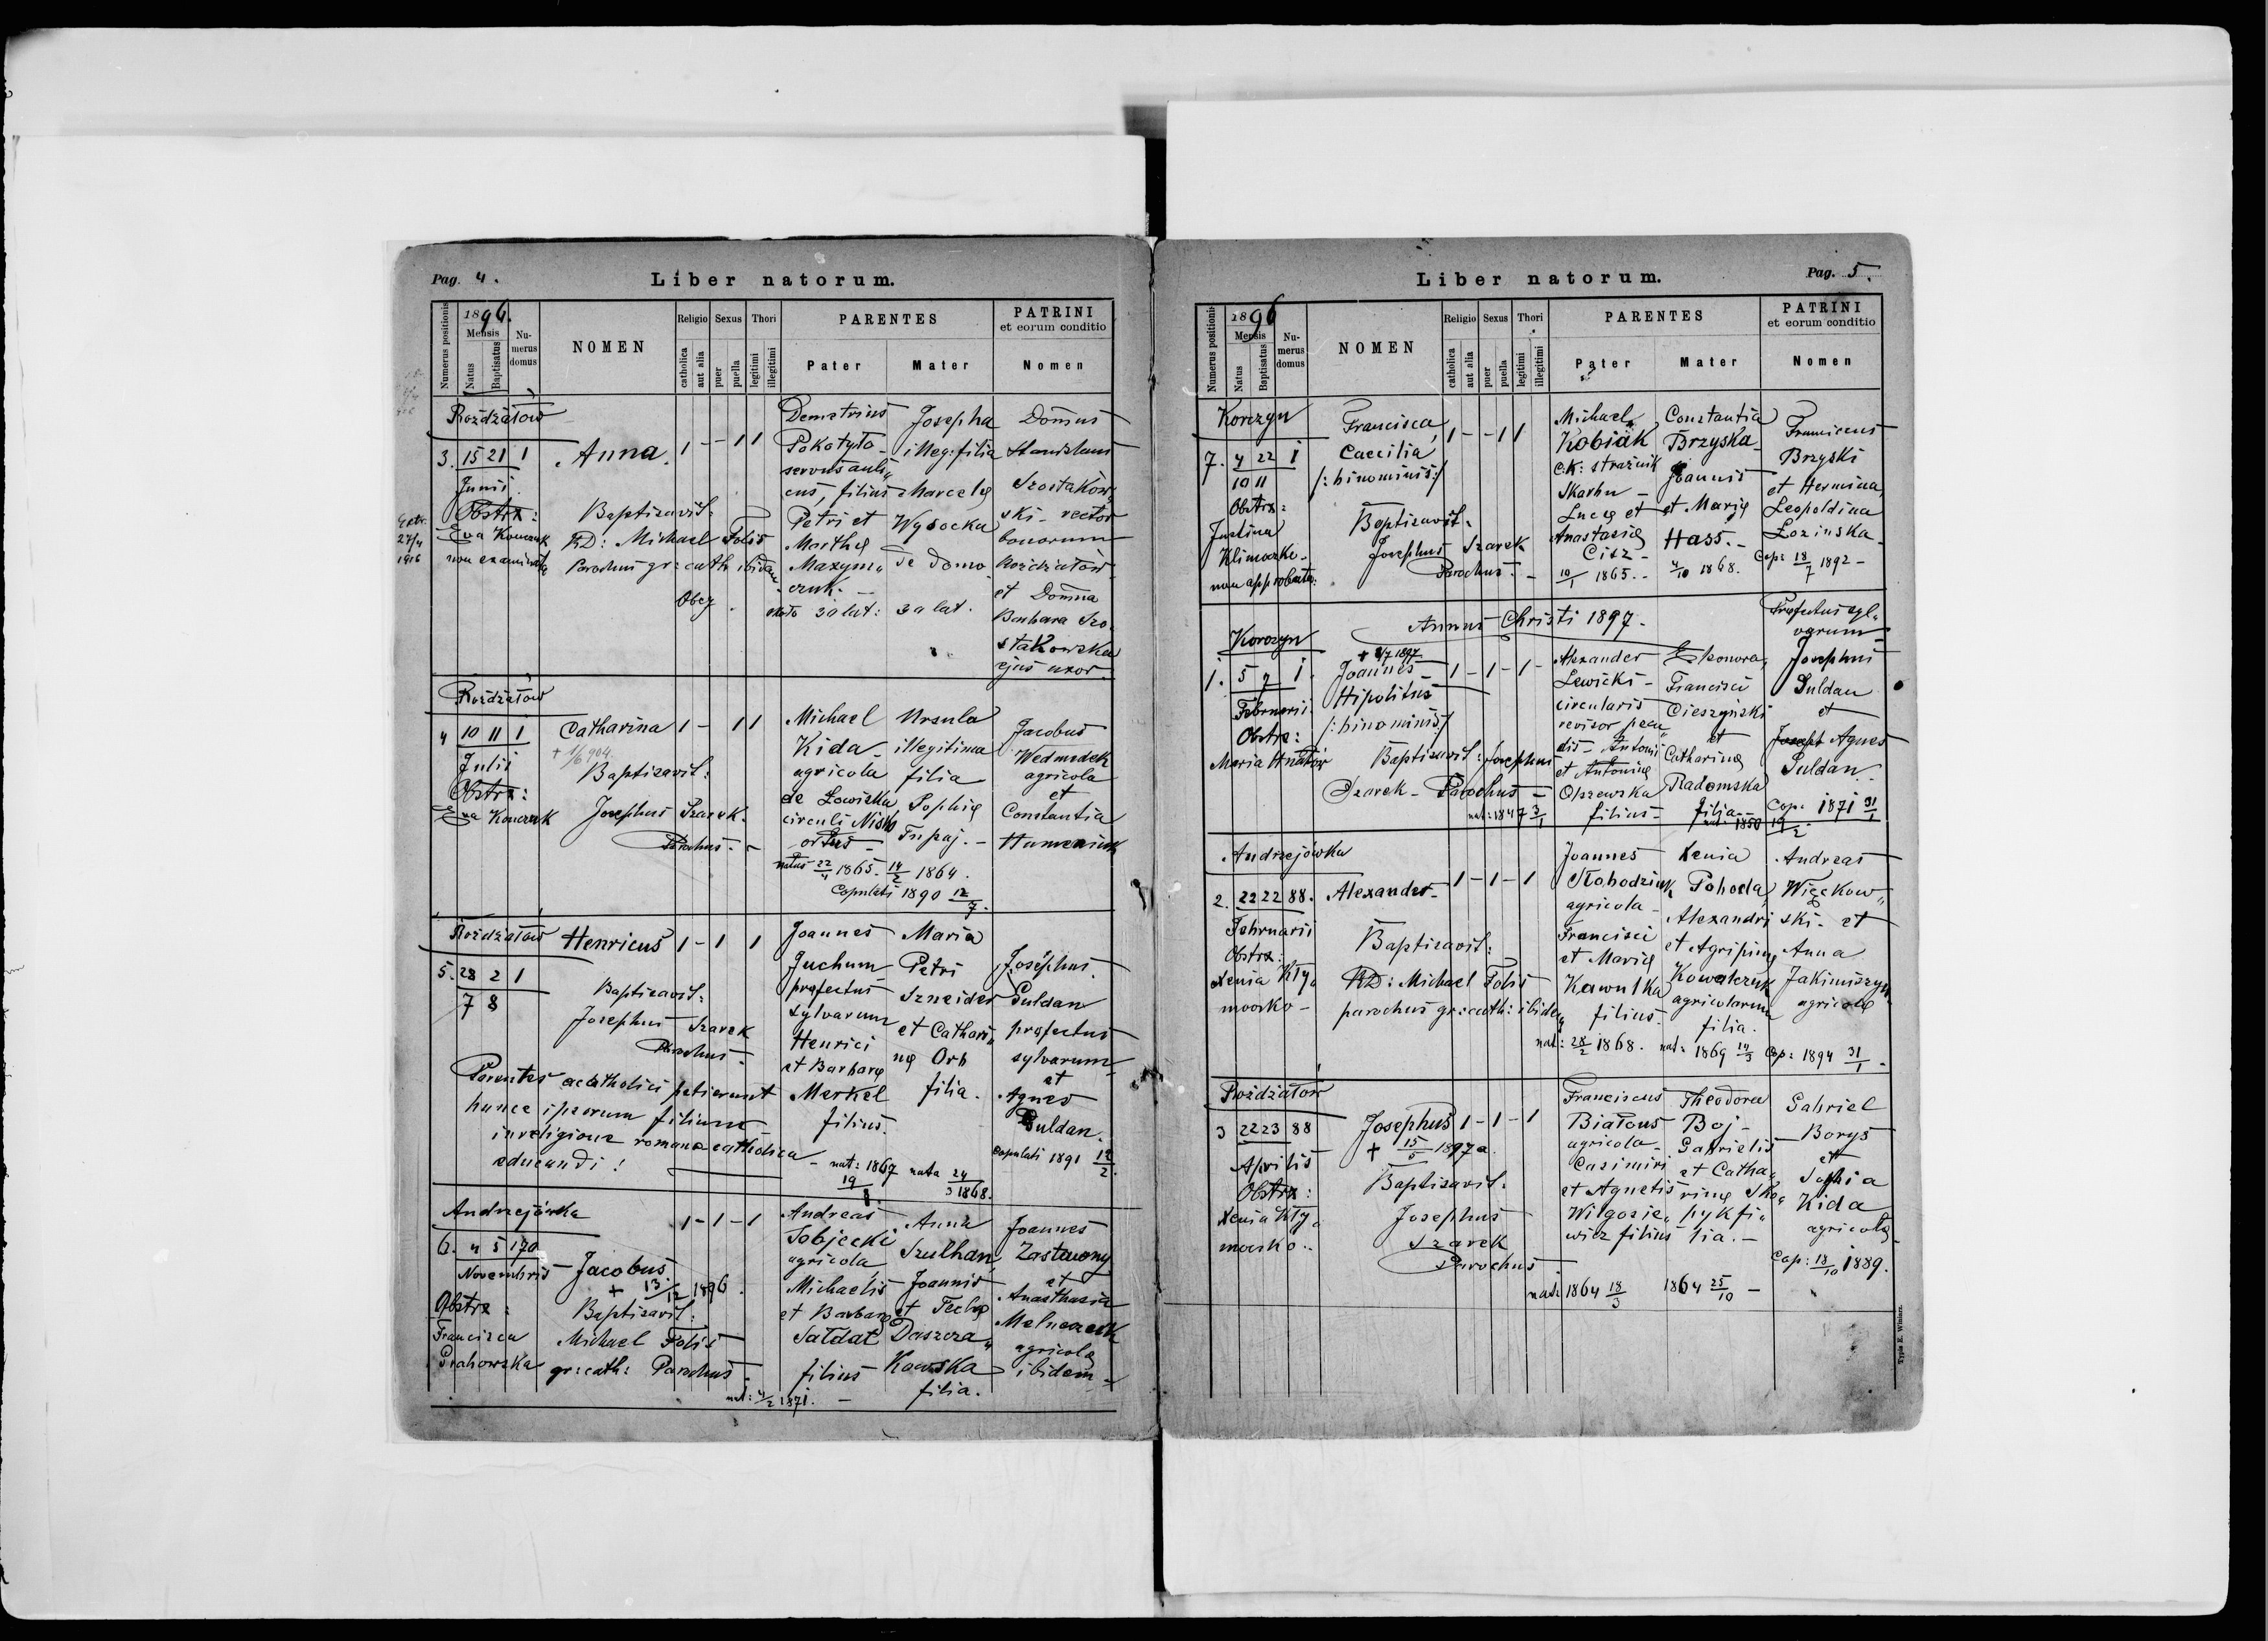 Pag. 4.
Liber natorum.
Numerus positionis
1896.
Mensis
Natus
Baptisatus
Numerus domus
NOMEN
Religio
catholica
aut alia
Sexus
puer
puella
Thori
legitimi
illegitimi
PARENTES
Pater
Mater
PATRINI
et eorum conditio
Nomen
Rożdżałów
3. 15 21 1
Junii
Obstrx:
Eva Konczuk
non examinata
Extr.
27/4
1916
Anna.
1 - - 1 1
Baptisavit:
RD: Michael Folis
Parochus gr: cath. ibidem
Obcy.
Demetrius
Pokotyło -
servus auli„
cus, filius
Petri et
Marthę
Maxym„
czuk. -
około 30 lat:
Josepha
illeg: filia
Marcelę
Wysocka
de domo
30 lat.
Domnus
Stanislaus
Szostakow„
ski - rector
bonorum
Rożdżałów
et Domna
Barbara Szo„
stakowska
ejus uxor.
Rożdżałów
4 10 11 1
Julii
Obstrx:
Eva Konczuk
Catharina
+ 1/6 904
1 - 1 1
Baptisavit:
Josephus Szarek.
Parochus. -
Michael
Kida -
agricola
de Łowiska
circuli Nisko
ortus -
natus 22/4 1865.
Ursula
illegitima
filia
Sophię
Tupaj. -
14/2 1864.
Copulati 1890 12/7.
Jacobus
Wedmedek
agricola
et
Constantia
Humeniuk
Rożdżałów
5. 28 2 1
7 8
Henricus
1 - 1 1
Baptisavit:
Josephus Szarek
Parochus. -
Parentes acatholici petierunt
hunce ipsorum filium
in religione romana catholica
educandi!
Joannes
Juchum
pręfectus
sylvarum
Henrici
et Barbarę
Merkel
filius.
nat: 1867 19/8.
Maria
Petri
Szneider
et Cathari„
nę Orb
filia.
nata 24/3 1868.
Josephus
Puldan
pręfectus
sylvarum
et
Agnes
Puldan.
Copulati 1891 12/2.
Andrzejówka
6. 4 5 170
Novembris
Obstrx:
Francisca
Prahowska
1 - 1 - 1
Jacobus
+ 13/12 1896.
Baptisavit:
Michael Folis
gr: cath: Parochus -
nat: 4/2 1871. -
Andreas
Sobjecki
agricola
Michaelis
et Barbarę
Sałdat
filius
Anna
Szulhan,
Joannis
et Teclę
Daszcza„
kowska
filia.
Joannes
Zastawny
et
Anasthasia
Melneczuk
agricolę
ibidem -
Liber natorum.
Pag. 5.
Numerus positionis
1896
Mensis
Natus
Baptisatus
Numerus domus
NOMEN
Religio
catholica
aut alia
Sexus
puer
puella
Thori
legitimi
illegitimi
PARENTES
Pater
Mater
PATRINI
et eorum conditio
Nomen
Korczyn
7. 4 22 1
10 11
Obstrx:
Justina
Klimaszko -
non approbata:
Francisca,
Caecilia
/: binominis :/
1 - - 1 1
Baptisavit:
Josephus Szarek
Parochus. -
Michael
Kobiak
c.k: strażnik
Skarbu -
Lucę et
Anastasię
Cisz -
10/1 1865. -
Constantia
Brzyska
Joannis
et Marię
Hass. -
4/10 1868.
Franciscus
Brzyski
et Hermina,
Leopoldina
Łozinska -
Cop: 18/7 1892 -
Annus Christi 1897.
Korczyn
1. 5 7 1.
Februarii
Obstrx:
Maria Hnatów
+ 8/7 1897
Joannes
Hipolitus
/: binominis :/
1 - 1 - 1 -
Baptisavit: Josephus
Szarek - Parochus -
nat: 1847 3/1
Alexander
Lewicki -
circularis
revisor pecu„
dis - Antoni
et Antoninę
Olszewska
filius -
Eleonora,
Francisci
Cieszyński
et
Catharinę
Radomska
filia -
nat: 1850 19/2
Pręfectus syl„
varum
Josephus
Puldan
et
Agnes
Puldan.
Cop: 1871 31/1
Andrzejówka
2. 22 22 88.
Februarii
Obstrx:
Xenia Kły„
moosko -
Alexander -
1 - 1 - 1
Baptisavit:
RD: Michael Folis
parochus gr: cath: ibidem
Joannes
Kohodziuk
agricola -
Francisci
et Marię
Kawulka
filius -
nat: 28/2 1868.
Xenia
Pohoda,
Alexandri
et Agripinę
Kowalczuk
agricolarum
filia.
nat: 1869 14/3
Andreas
Więckow„
ski - et
Anna
Jakimiszyn
agricolę
Cop: 1894 31/1 -
Rożdżałów
3 22 23 88
Aprilis
Obstrx:
Xenia Kły„
mosko -
Josephus
+ 15/5 1897 a.
1 - 1 - 1
Baptisavit:
Josephus
Szarek
Parochus
Franciscus
Białous
agricola -
Casimiri
et Agnetis
Wilgosie„
wicz filius
nat: 1864 18/3
Theodora
Boj -
Gabrielis
et Catha„
rinę Sko„
pyk fi„
lia. -
1864 25/10 -
Gabriel
Borys
et
Sophia
Kida
agricolę
Cop: 18/10 1889.
Typis E. Winiarz.